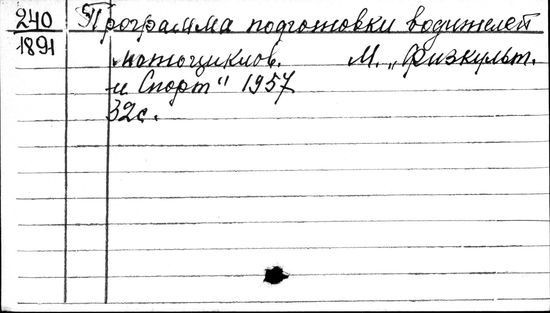 240
1891
Программа подготовки водителей
мотоциклов. М. „Физкульт.
и Спорт" 1957
32с.